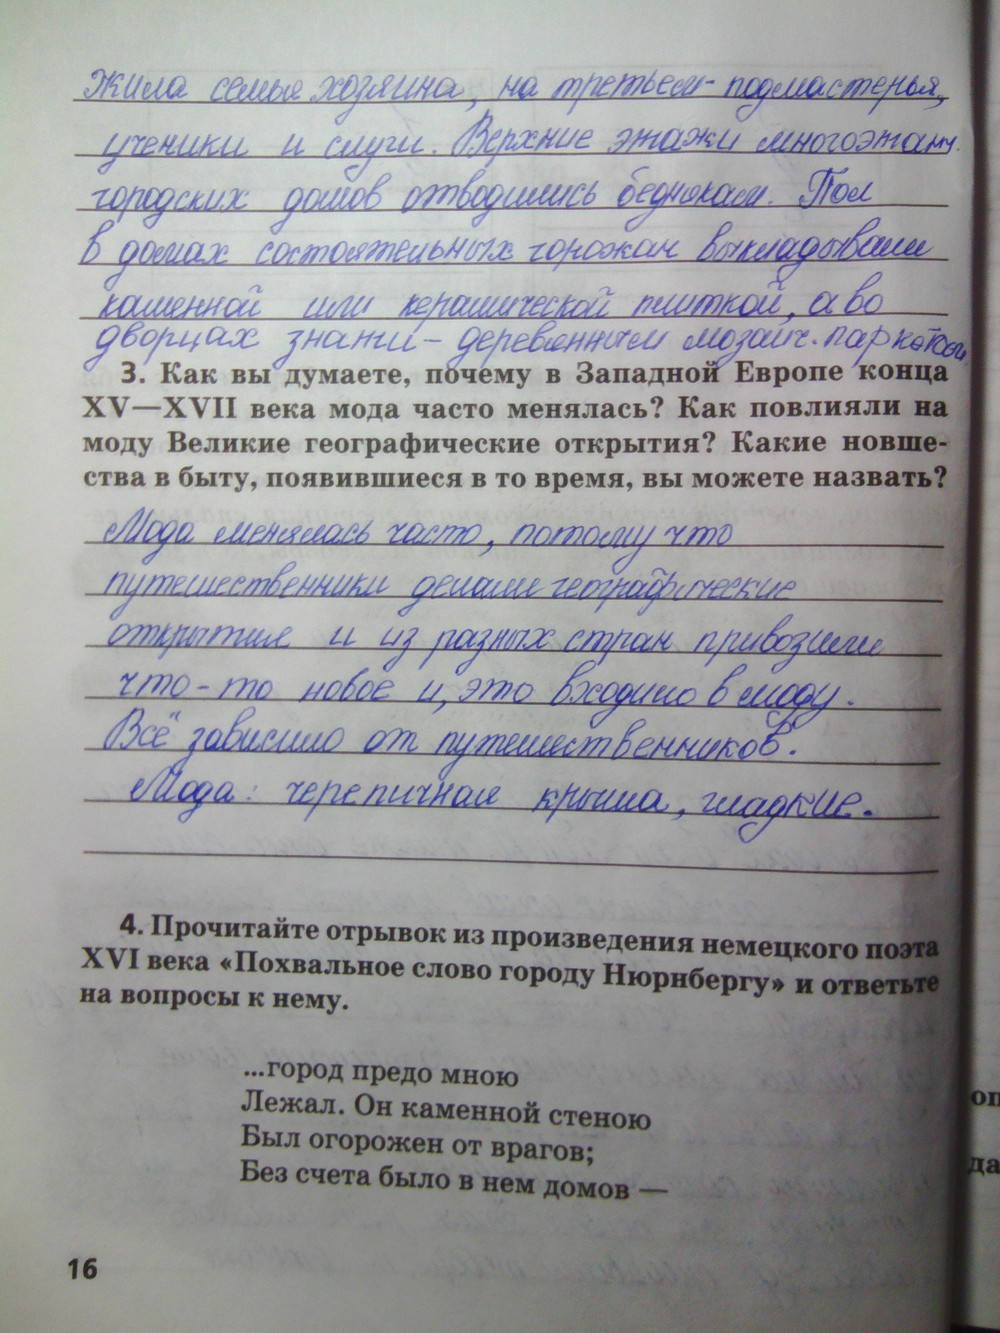 Жила семья хозяина, на третьем - подмастерья,
ученики и слуги. Верхние этажи многоэтажн.
городских домов отводились беднякам. Пол
в домах состоятельных горожан выкладывали
каменной или керамической плиткой, а во
дворцах знати - деревянным мозаич. паркетом
3. Как вы думаете, почему в Западной Европе конца
XV—XVII века мода часто менялась? Как повлияли на
моду Великие географические открытия? Какие новше-
ства в быту, появившиеся в то время, вы можете назвать?
Мода менялась часто, потому что
путешественники делали географические
открытия и из разных стран привозили
что-то новое и, это входило в моду.
Всё зависило от путешественников.
Мода: черепичная крыша, гладкие.
4. Прочитайте отрывок из произведения немецкого поэта
XVI века «Похвальное слово городу Нюрнбергу» и ответьте
на вопросы к нему.
...город предо мною
Лежал. Он каменной стеною
Был огорожен от врагов;
Без счета было в нем домов —
16
оп
да